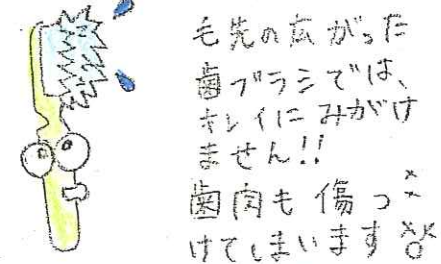 毛先の広がった
歯ブラシでは、
キレイにみがけ
ません!!
歯肉も傷つ
けてしまいます